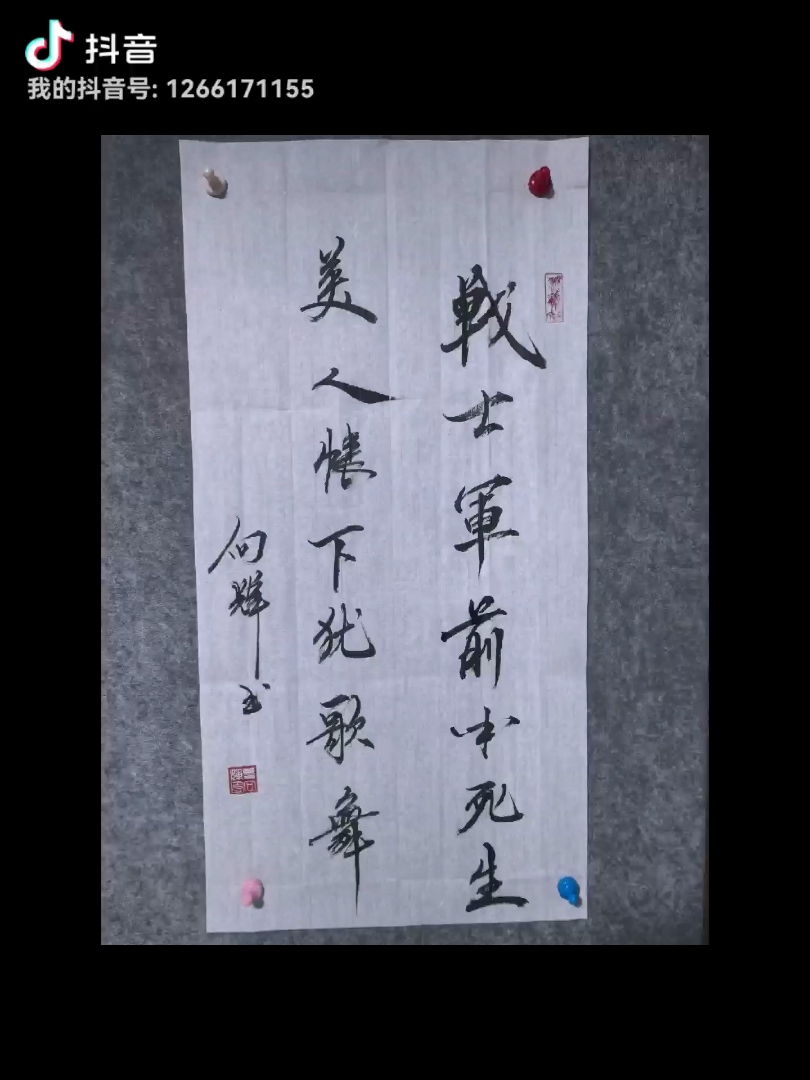 抖音
我的抖音号: 1266171155
戰士軍前半死生
美人帳下犹歌舞
向輝书